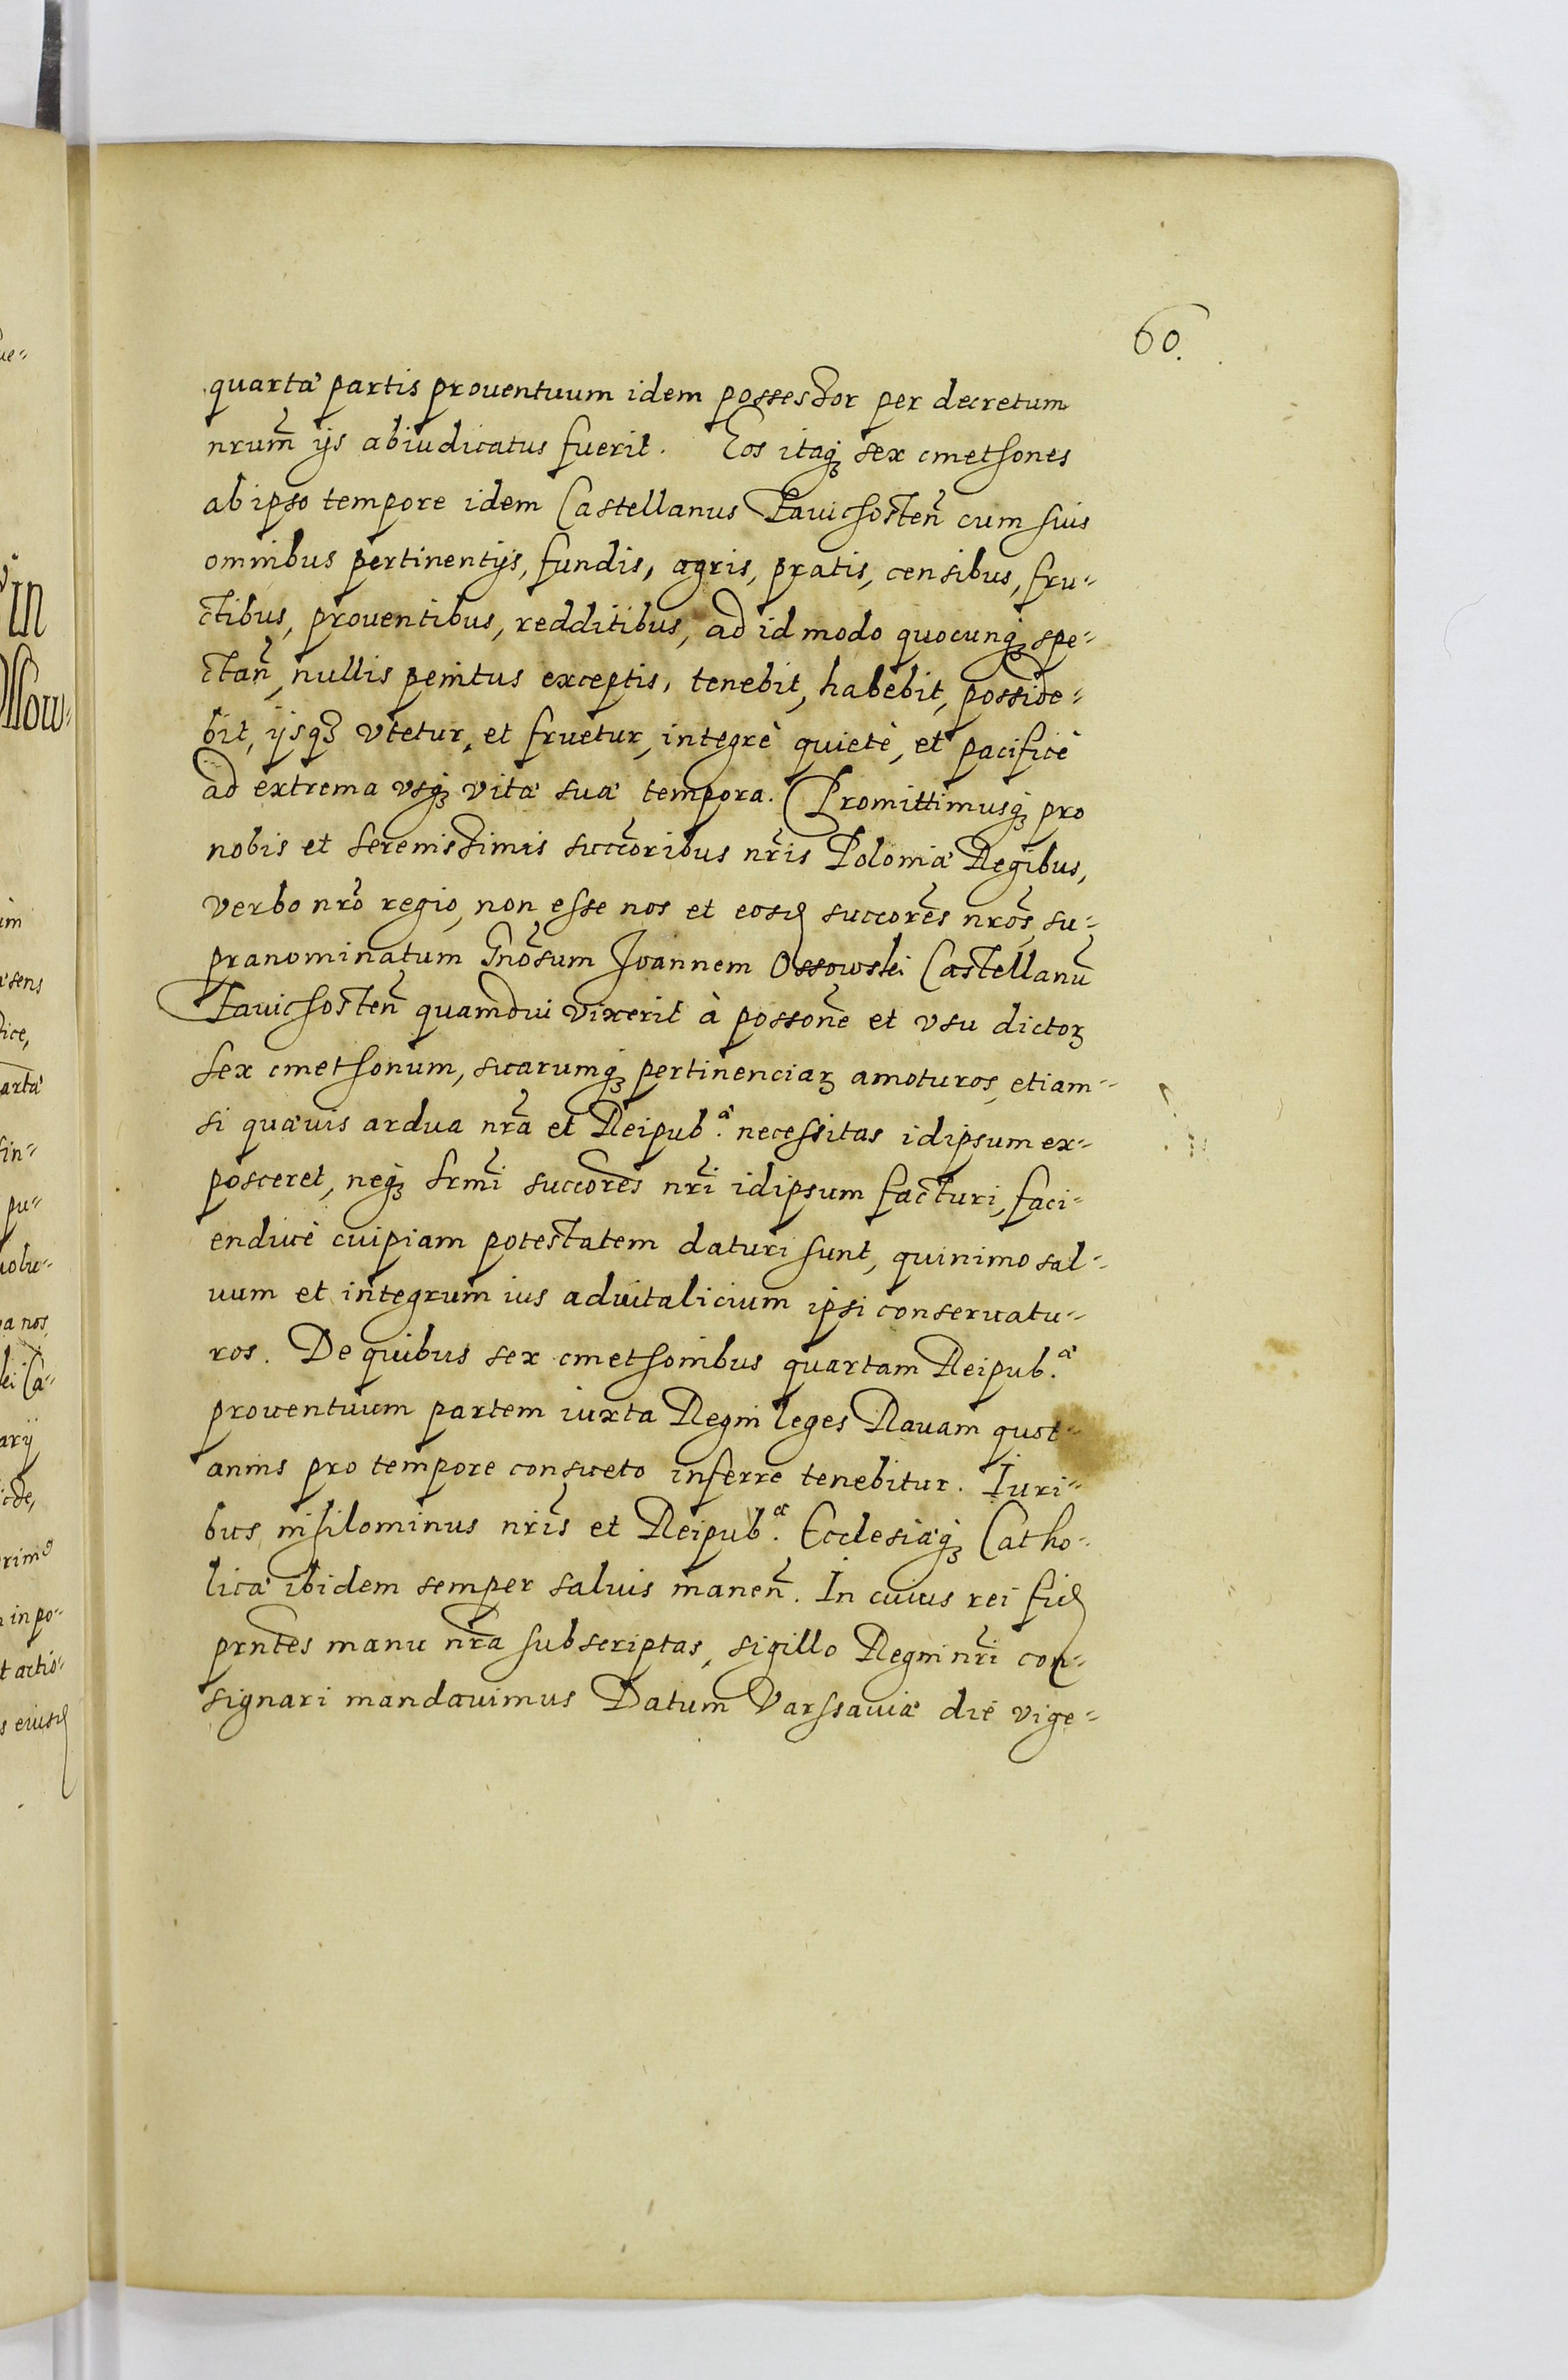 60.
quartæ partis prouentuum idem possessor per decretum
nrum̃ ijs abiudicatus fuerit. Eos itaqꝫ sex cmethones
ab ipso tempore idem Castellanus Zauichosteñ cum suis
omnibus pertinentijs, fundis, agris, pratis, censibus, fru-
ctibus, prouentibus, redditibus, ad id modo quocunqꝫ spe-
ctañ, nullis penitus exceptis, tenebit, habebit, posside-
bit, ijsqꝫ vtetur, et fruetur, integrè quietè, et pacificè
ad extrema vsqꝫ vitæ suæ tempora. Promittimusqꝫ pro
nobis et serenissimis succ̃oribus nr̃is Poloniæ Regibus,
verbo nrõ regio, non esse nos et eosd succorẽs nrõs, su-
pranominatum Gnõsum Joannem Ossowski Castellanũ
Zauichosteñ quamdiu vixerit à possoñe et vsu dictoꝝ
sex cmethonum, suarumqꝫ pertinenciaꝝ amoturos, etiam-
si quæuis ardua nrã et Reipub.æ necessitas idipsum ex-
posceret, neqꝫ srmĩ succorẽs nrĩ idipsum facturi, faci-
endiuè cuipiam potestatem daturi sunt, quinimo sal-
uum et integrum ius aduitalicium ipsi conseruatu-
ros. De quibus sex cmethonibus quartam Reipub.æ
prouentuum partem iuxta Regni leges Rauam quot-
annis pro tempore consueto inferre tenebitur. Iuri-
bus nihilominus nrĩs et Reipub.æ Ecclesiæqꝫ Catho-
licæ ibidem semper saluis maneñ. In cuius rei fid
prñtes manu nrã subscriptas, sigillo Regni nrĩ con-
signari mandauimus Datum Varssauiæ die vige-